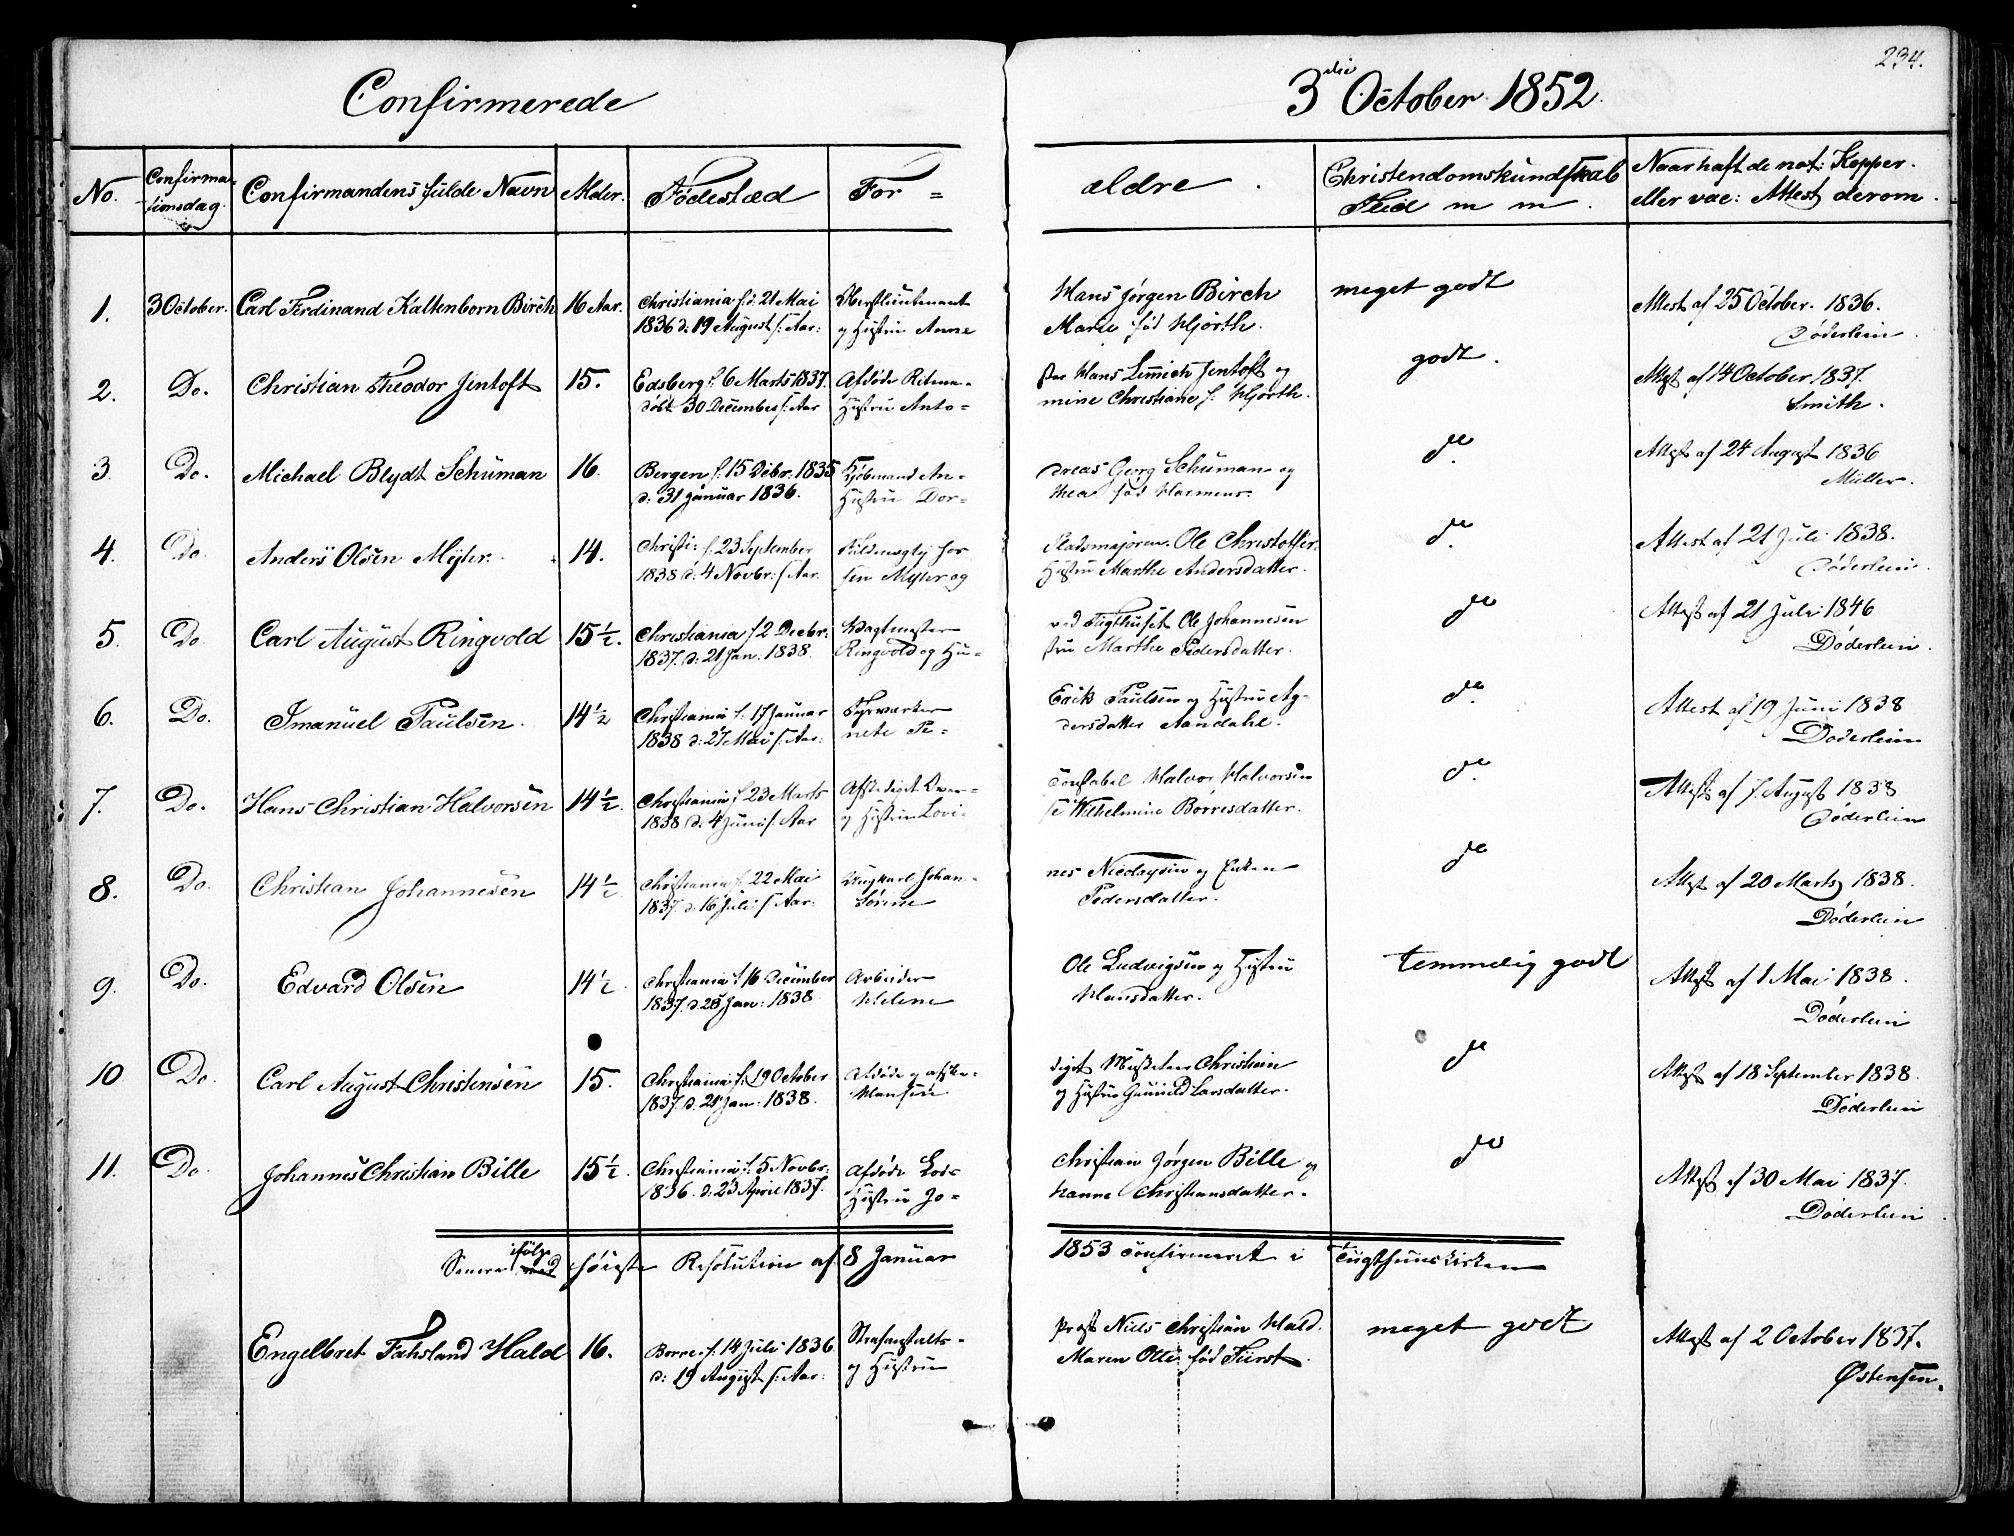 234.
Confirmerede
3die October 1852.
No. Confirmationsdag. Confirmandens fulde Navn Alder. Fødested For = ældre. Christendomskundskab Flid m m. Naar havt de nat: Kopper. eller vac: Attest derom.
1. 3 October. Carl Ferdinand Kaltenborn Birch 16 Aar. Christiania f: d: 21 Mai Oberstlieutenant Hans Jørgen Birch meget godt Attest af 25 October. 1836.
1836 d: 19 August s: Aar: og Hustru Anne Marie født Hjorth. Døderlein
2. Do. Christian Theodor Jentoft 15. Edsberg f. 6 Marts 1837. Afdøde Ritme= ster Hans Lemmich Jentoft og godt. Attest af 14 October 1837.
døbt 30 December s: Aar Hustru Anto= mine Christiane f. Hjorth. Smith.
3 Do. Michael Blydt Schuman 16. Bergen f. 15 Debr. 1835 Kjøbmand An= dreas Georg Schuman og do. Attest af 24 August 1836
d: 31 Januar 1836. Hustru Dor= thea født Harmens. Müller.
4. Do. Anders Olsen Myhr. 14. Christi: f. 23 September Fuldmægtig hos Pladsmajoren Ole Christoffer do. Attest af 21 Juli 1838.
1838 d: 4 Novbr: s: Aar. sen Myhr og Hustru Marthe Andersdatter. Døderlein.
5. Do Carl August Ringvold 15½. Christiania f 2 Decbr: Vagtmester ved Tugthuset Ole Johannesen do Attest af 21 Juli 1846
1837. d: 21 Jan: 1838. Ringvold og Hu= stru Marthe Pedersdatter. Døderlein.
6. Do. Imanuel Paulsen. 14½ Christiania f. 17 Januar Fyrværker Erik Paulsen og Hustru Ag= do. Attest af 19 Juni 1838
1838 d: 27 Mai s: Aar: nete Pe= dersdatter Aandahl. Døderlein
7. Do. Hans Christian Halvorsen 14½. Christiania f 23 Marts Afskediget Over= constabel Halvor Halvorsen do. Attest af 7. August 1838.
1838 d: 4 Juni s: Aar og Hustru Lovi= se Wilhelmine Børresdatter. Døderlein
8. Do. Christian Johannesen 14½ Christiania f. 22 Mai Ungkarl Johan= nes Nicolaysen og Enken do Attest af 20 Marts 1838.
1837. d: 16 Juli s: Aar: Sørine Pedersdatter. Døderlein
9. Do. Edvard Olsen 14½ Christiania f. 16 December Arbeider Ole Ludvigsen og Hustru temmelig godt Attest af 1 Mai 1838.
1837. d. 28 Jan: 1838. Helene Hansdatter. Døderlein
10 Do. Carl August Christensen 15. Christiania f. 19 October Afdøde og afske= diget Musketeer Christian do Attest af 18 September 1838.
1837. d. 21 Jan: 1838. Hansen og Hustru Gunild Larsdatter. Døderlein
11. Do. Johannes Christian Bille 15½. Christiania f. 5 Novbr: Afdøde Lods Christian Jørgen Bille og do Attest af 30 Mai 1837.
1836. d: 23 April 1837. Hustru Jo= hanne Christiansdatter. Døderlein.
Senere ifølge med høieste Resolution af 8 Januar 1853 confirmeret i Tugthuuskirken
Engelbret Fahsland Hald 16. Borre f. 14 Juli 1836 Strafanstalts= præst Niels Christian Hald. meget godt Attest af 2 October 1837.
d: 19 August s: Aar: og Hustru Maren Otte født Fürst. Østensen.